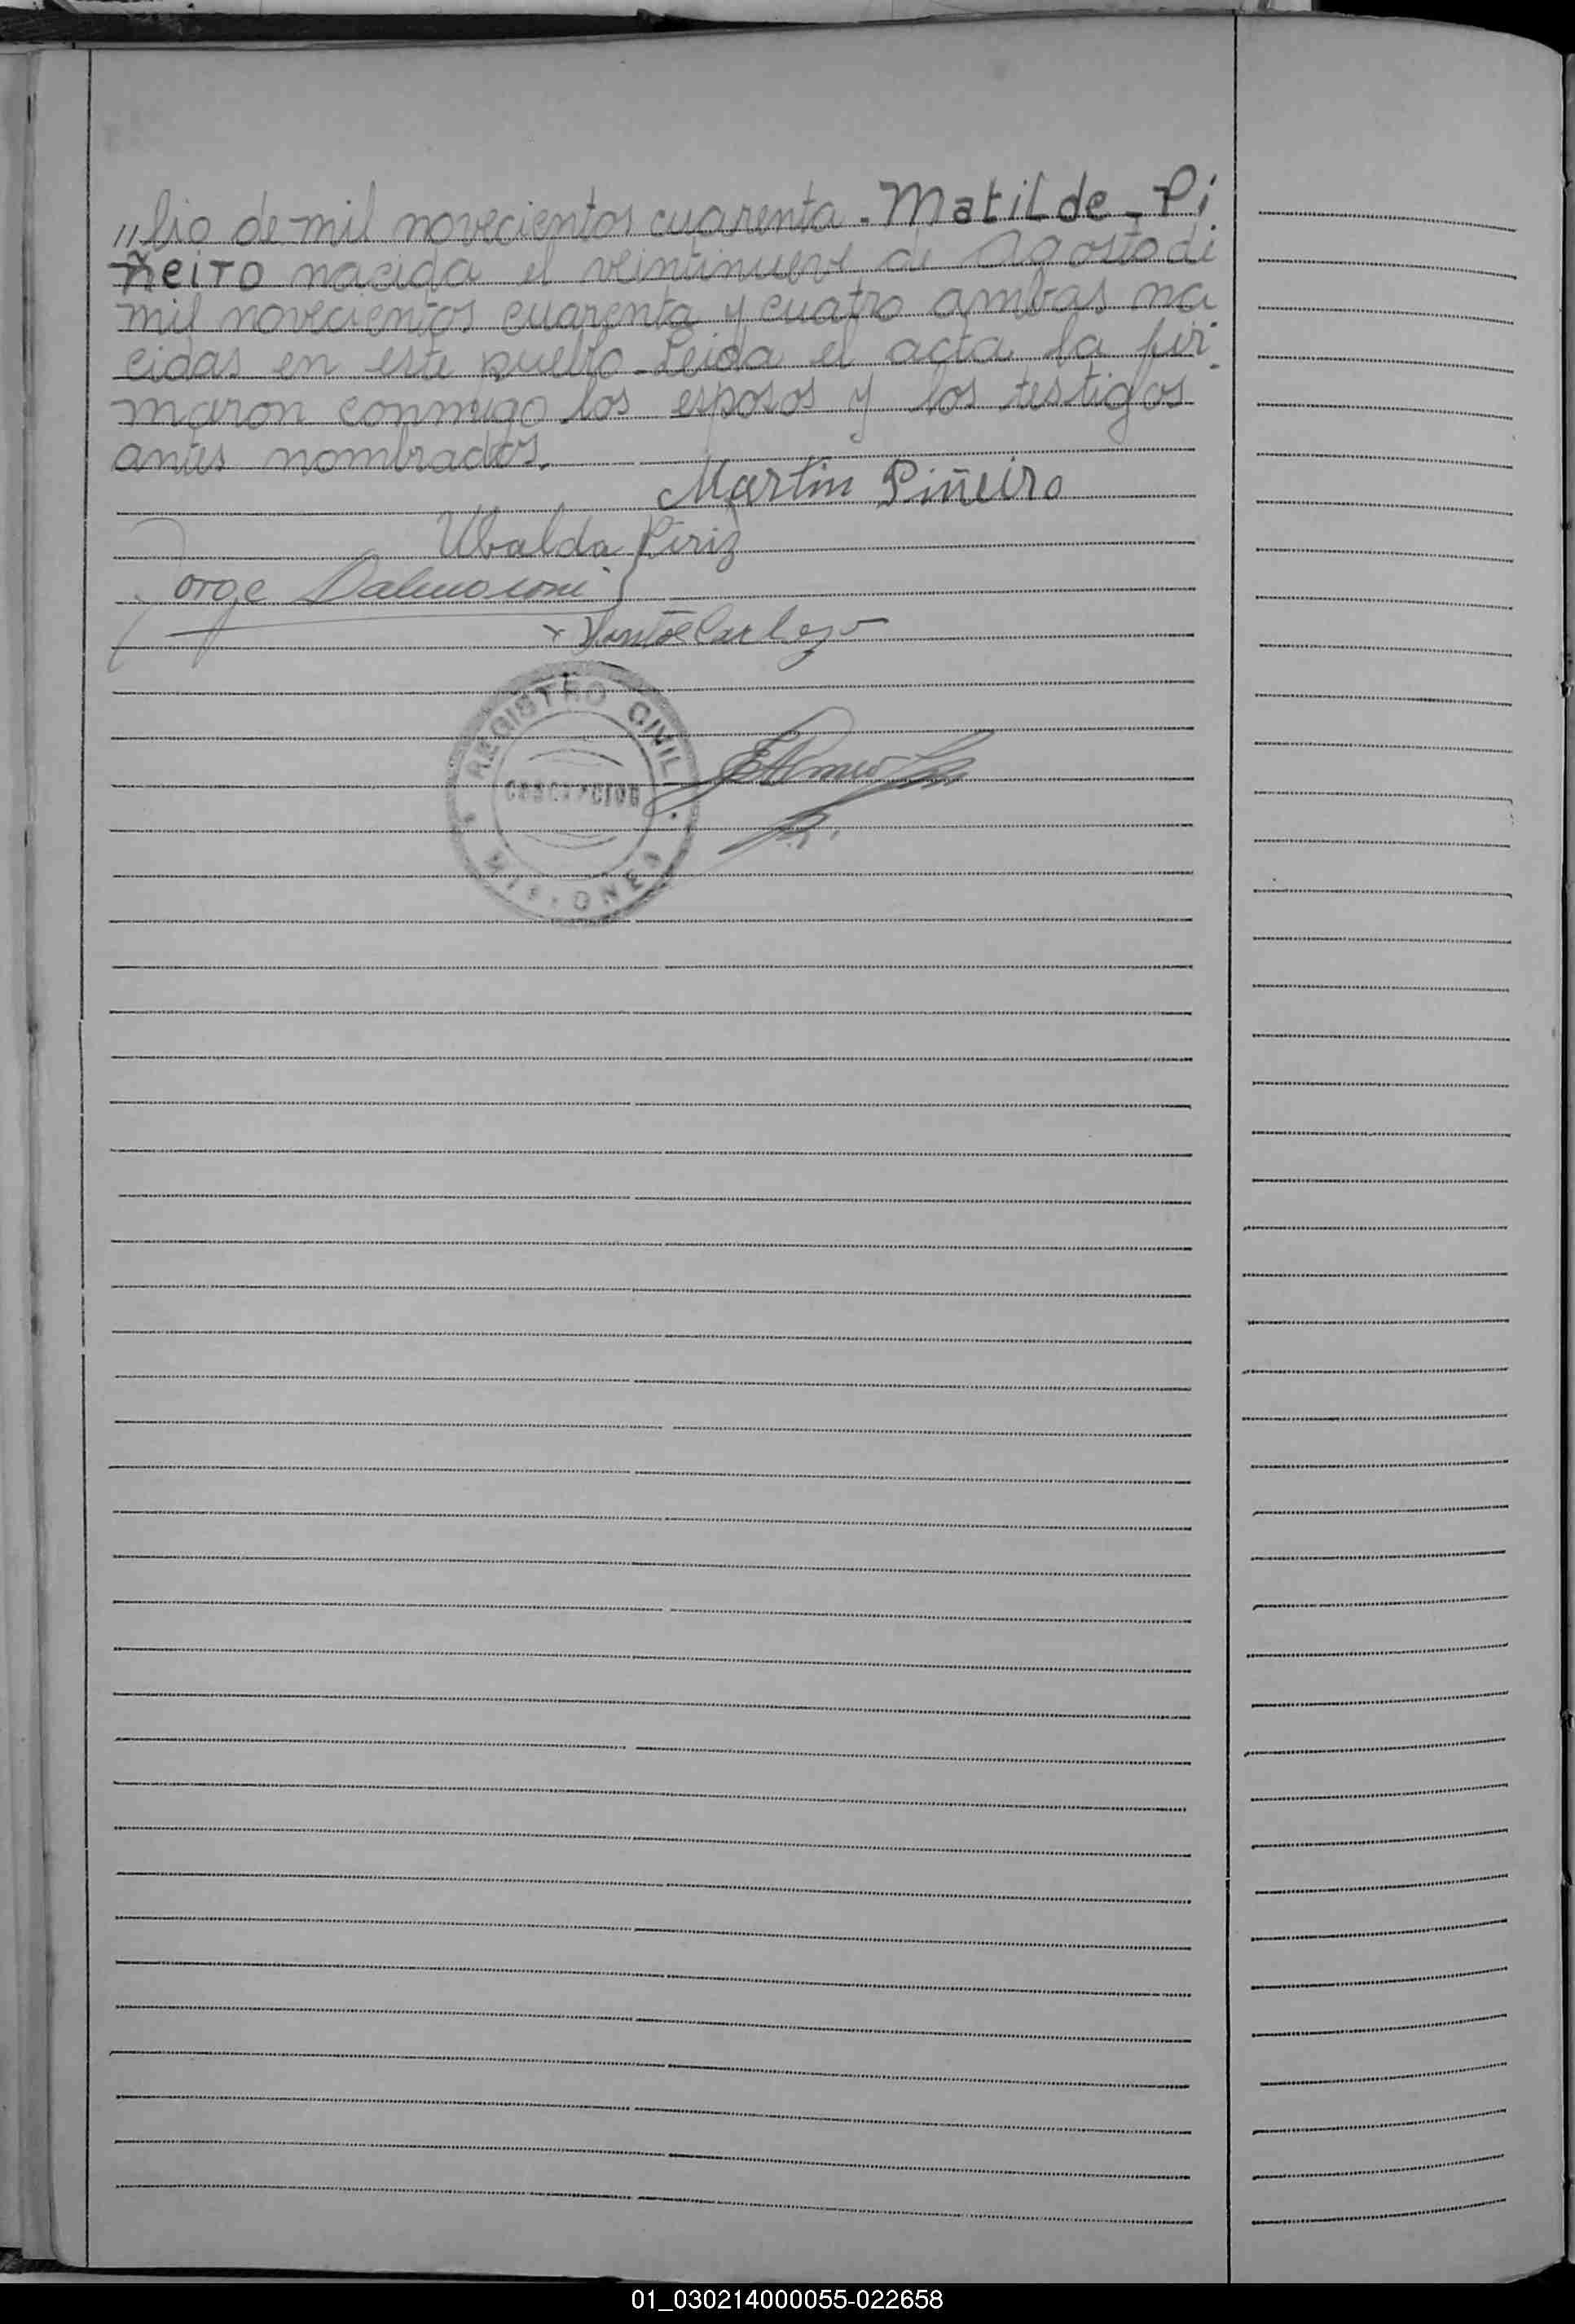 "lio de mil novecientos cuarenta - Matilde - Pi
ñeiro nacida el veintinueve de Agosto de
mil novecientos cuarenta y cuatro ambas na
cidas en este pueblo - Leida el acta la fir
maron conmigo los esposos y los testigos
antes nombrados.
Martin Piñeiro
Ubalda Piriz
Jorge Dalmaroni
REGISTRO CIVIL
CONCEPCION
MISIONES
01_030214000055-022658